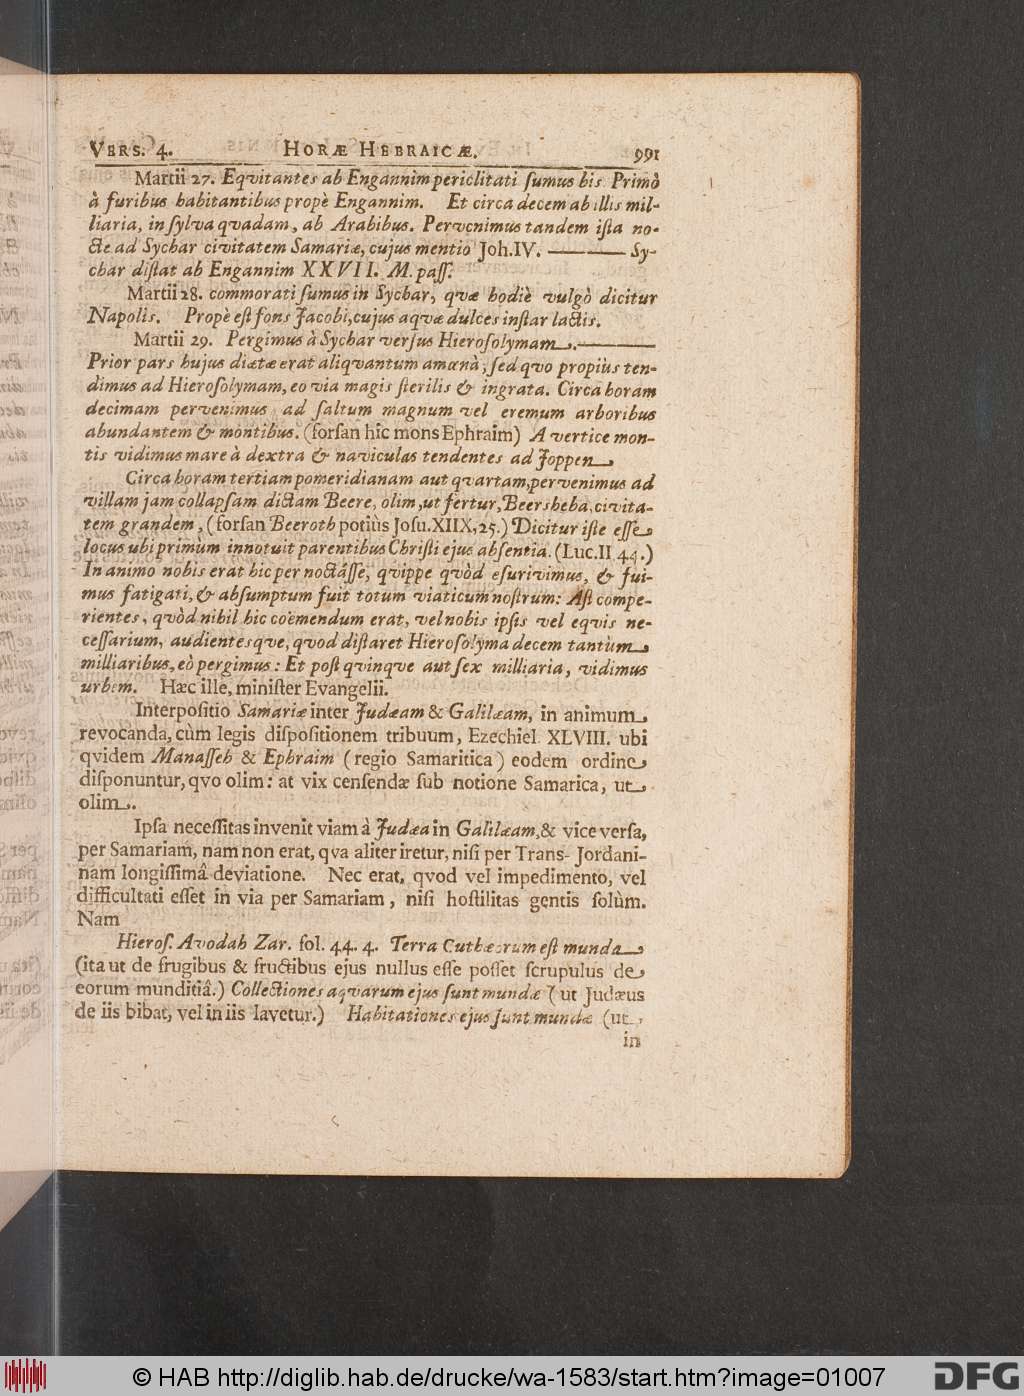 VERS. 4. HORÆ HEBRAICÆ. 991
Martii 27. Eqvitantes ab Engannim periclitati ſumus bis. Primò
à furibus habitantibus propè Engannim. Et circa decem ab illis mil-
liaria, in ſylva qvadam, ab Arabibus. Pervenimus tandem iſta no-
cte ad Sychar civitatem Samariæ, cujus mentio Joh. IV. ——— Sy-
char diſtat ab Engannim XXVII. M. paſſ.
Martii 28. commorati ſumus in Sychar, qvæ hodiè vulgò dicitur
Napolis. Propè eſt fons Jacobi, cujus aqvæ dulces inſtar lactis.
Martii 29. Pergimus à Sychar verſus Hieroſolymam. ———
Prior pars hujus diætæ erat aliqvantum amœna, ſed qvo propiùs ten-
dimus ad Hieroſolymam, eo via magis ſterilis & ingrata. Circa horam
decimam pervenimus ad ſaltum magnum vel eremum arboribus
abundantem & montibus. (forſan hic mons Ephraim) A vertice mon-
tis vidimus mare à dextra & naviculas tendentes ad Joppen
Circa horam tertiam pomeridianam aut qvartam, pervenimus ad
villam jam collapſam dictam Beere, olim, ut fertur, Beersheba, civita-
tem grandem, (forſan Beeroth potiùs Joſu. XIIX, 25.) Dicitur iſte eſſe
locus ubi primùm innotuit parentibus Chriſti ejus abſentia. (Luc. II 44.)
In animo nobis erat hic pernoctáſſe, qvippe qvòd eſurivimus, & fui-
mus fatigati, & abſumptum fuit totum viaticum noſtrum: Aſt compe-
rientes, qvòd nihil hic coëmendum erat, vel nobis ipſis vel eqvis ne-
ceſſarium, audientesqve, quod diſtaret Hieroſolyma decem tantùm
milliaribus, eò pergimus: Et poſt qvinqve aut ſex milliaria, vidimus
urbem. Hæc ille, miniſter Evangelii.
Interpoſitio Samariæ inter Judæam & Galilæam, in animum
revocanda, cùm legis diſpoſitionem tribuum, Ezechiel. XLVIII. ubi
qvidem Manaſſeh & Ephraim (regio Samaritica) eodem ordine
diſponuntur, qvo olim: at vix cenſendæ ſub notione Samarica, ut
olim.
Ipſa neceſſitas invenit viam à Judæa in Galilæam, & vice verſa,
per Samariam, nam non erat, qva aliter iretur, niſi per Trans-Jordani-
nam longiſſimâ deviatione. Nec erat, qvod vel impedimento, vel
difficultati eſſet in via per Samariam, niſi hoſtilitas gentis ſolùm.
Nam
Hieroſ. Avodah Zar. fol. 44. 4. Terra Cuthæorum eſt munda
(ita ut de frugibus & fructibus ejus nullus eſſe poſſet ſcrupulus de
eorum munditiâ.) Collectiones aqvarum ejus ſunt mundæ (ut Judæus
de iis bibat, vel in iis lavetur.) Habitationes ejus ſunt mundæ (ut
in
© HAB http://diglib.hab.de/drucke/wa-1583/start.htm?image=01007
DFG